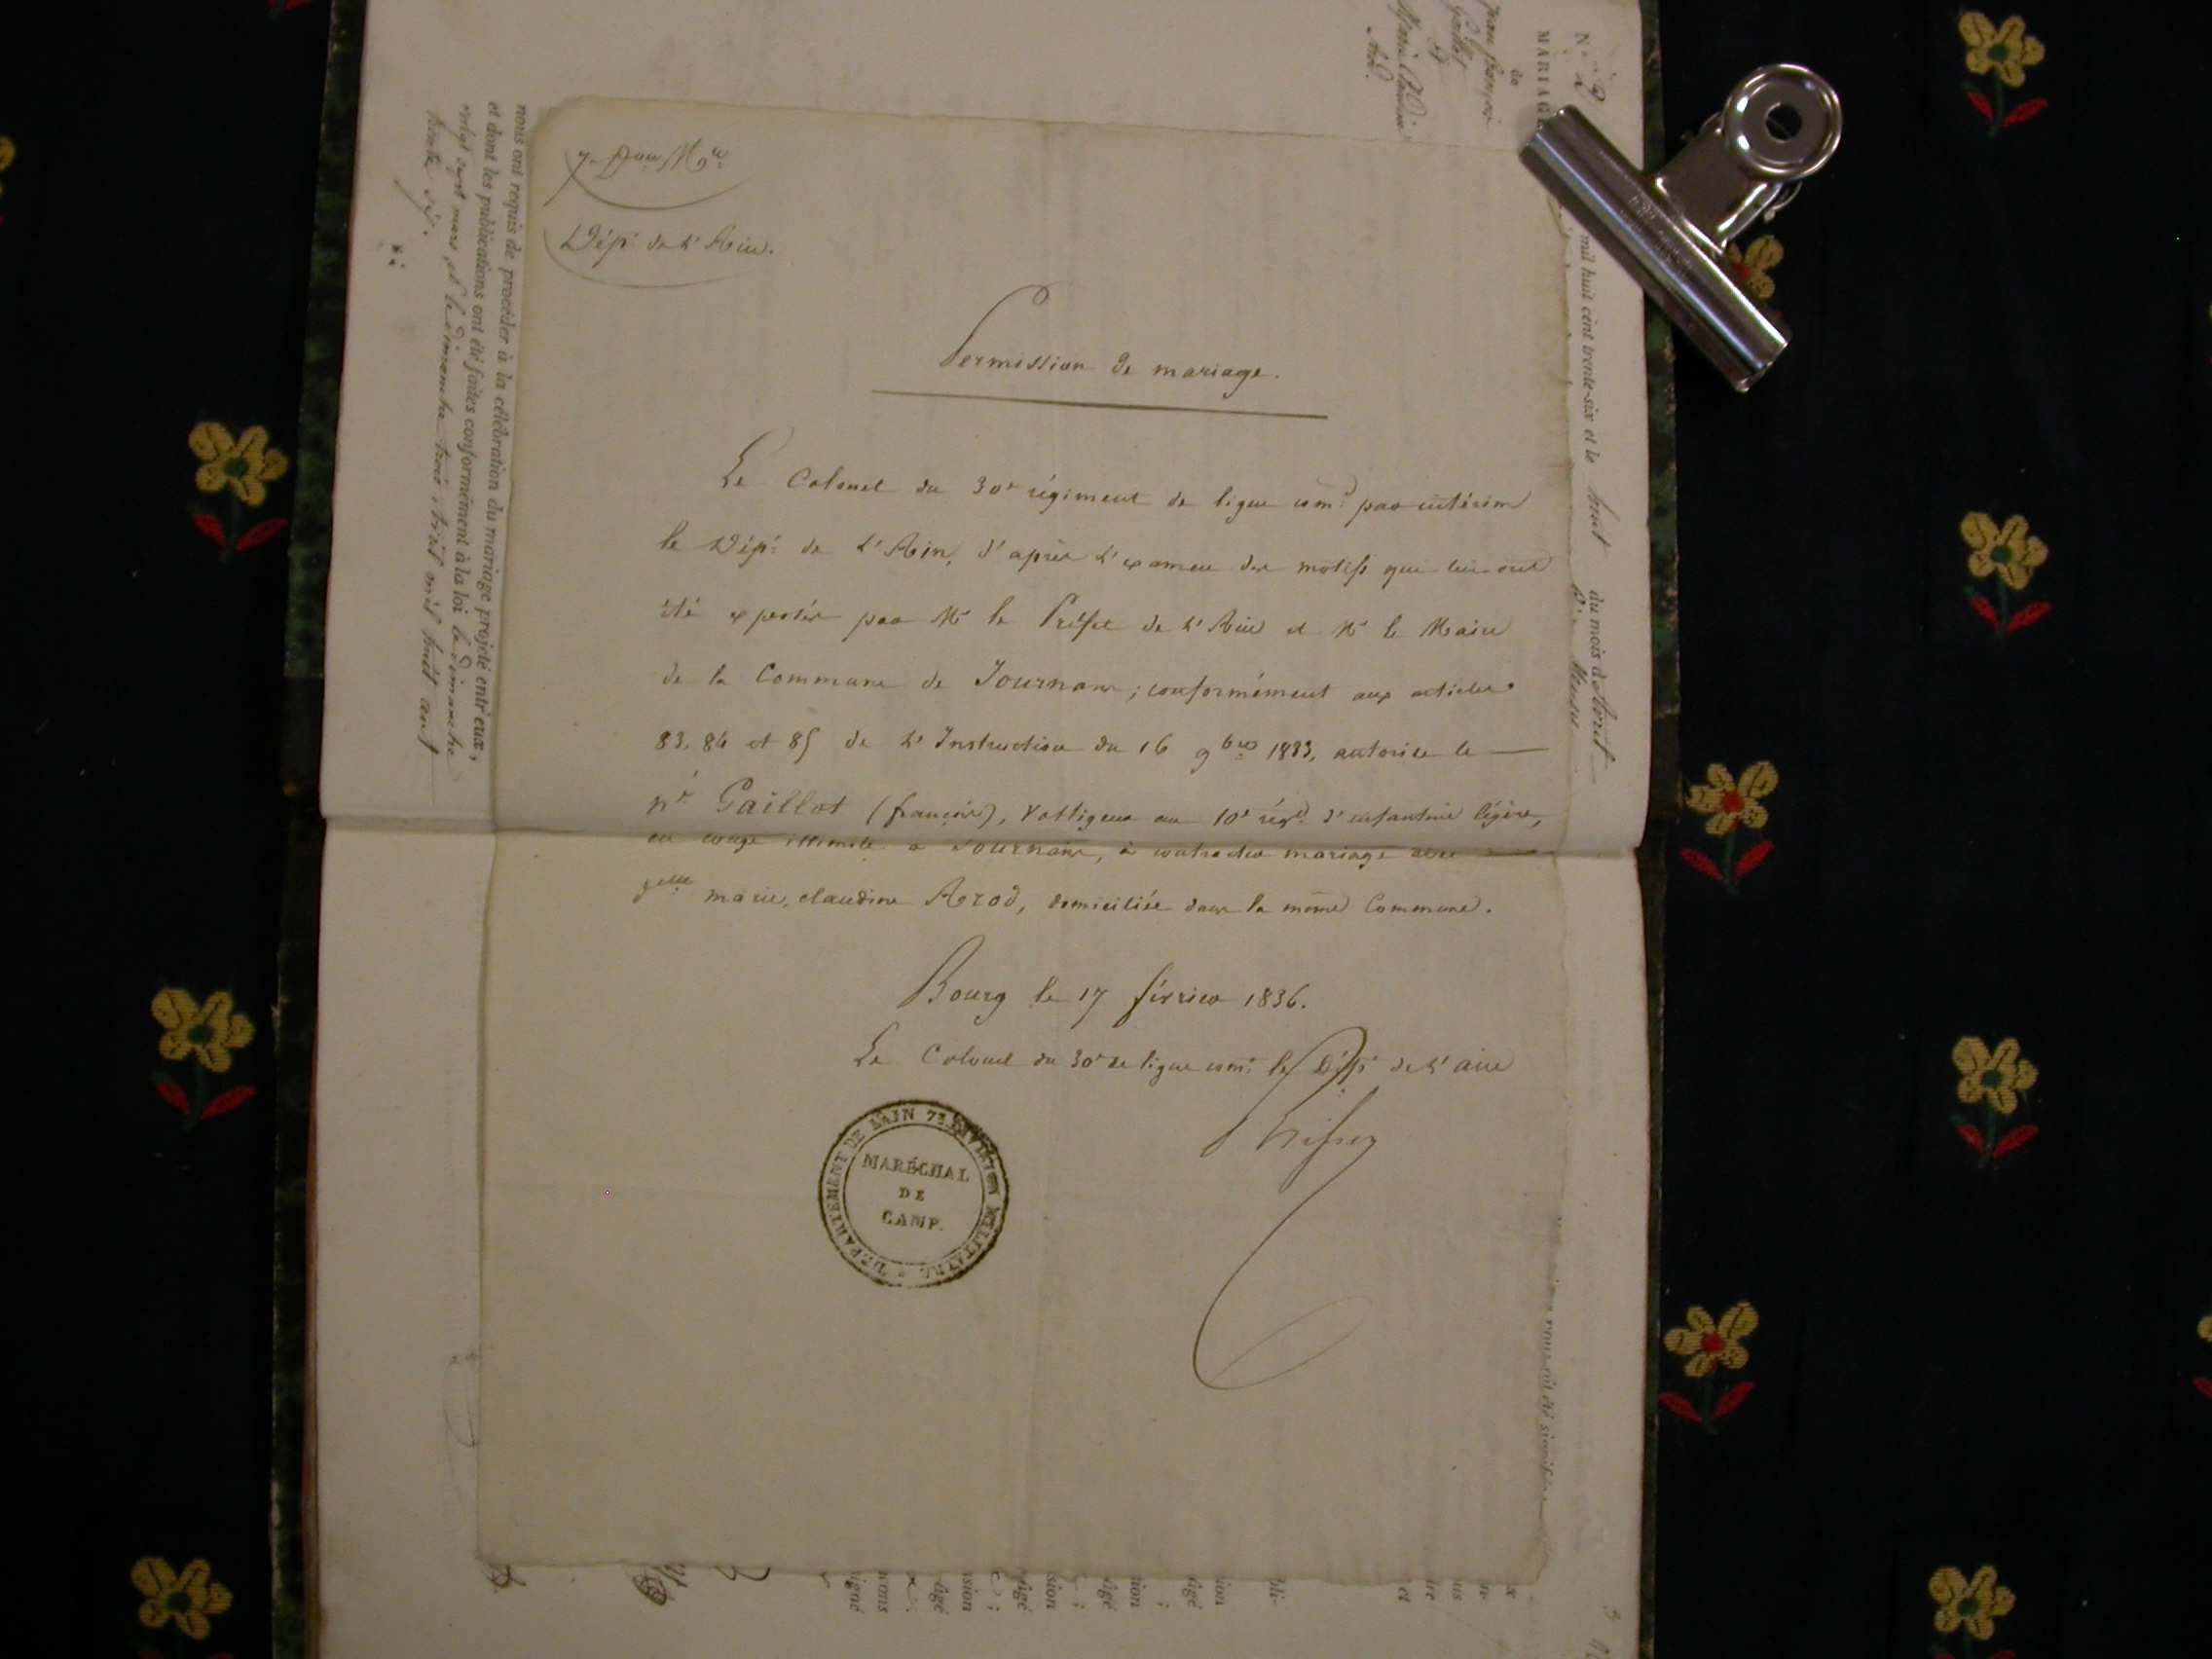 7e Don Mre
Dépt de l'Ain.
Permission de mariage.
Le Colonel du 30e régiment de ligne comt par intérim
le Dépt de l'Ain, d'après l'examen des motifs qui lui ont
été exposés par Mr le Préfet de l'Ain et Mr le Maire
de la Commune de Journans; conformément aux articles
83, 84 et 85 de l'Instruction du 16 9bre 1833, autorise le
né Gaillot (françois), Voltigeur au 10e régt d'infanterie légère,
en congé illimité à Journans, à contracter mariage avec
marie, claudine Arod, domiciliée dans la même Commune.
Bourg le 17 février 1836.
Le Colonel du 30e de ligne comt le Dépt de l'ain
DÉPARTEMENT DE L'AIN 7e DIVISION MILITAIRE
MARÉCHAL
DE
CAMP.
N° 2
MARIAGE
de
jean françois
Gaillot
et
Marie Claudine
Arod.
mil huit cent trente-six et le huit du mois d'Avril
nous ont requis de procéder à la célébration du mariage projeté entr'eux,
et dont les publications ont été faites conformément à la loi le dimanche
vingt sept mars et le dimanche trois avril mil huit cent
trente six.